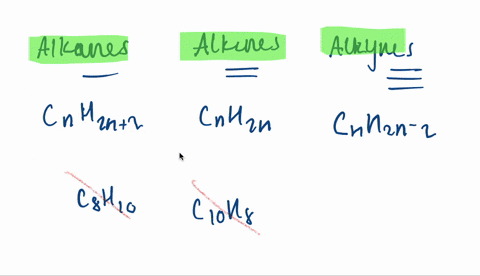 Alkanes Alkenes Alkynes
CnH2n+2 CnH2n CnH2n-2
C8H10 C10H8